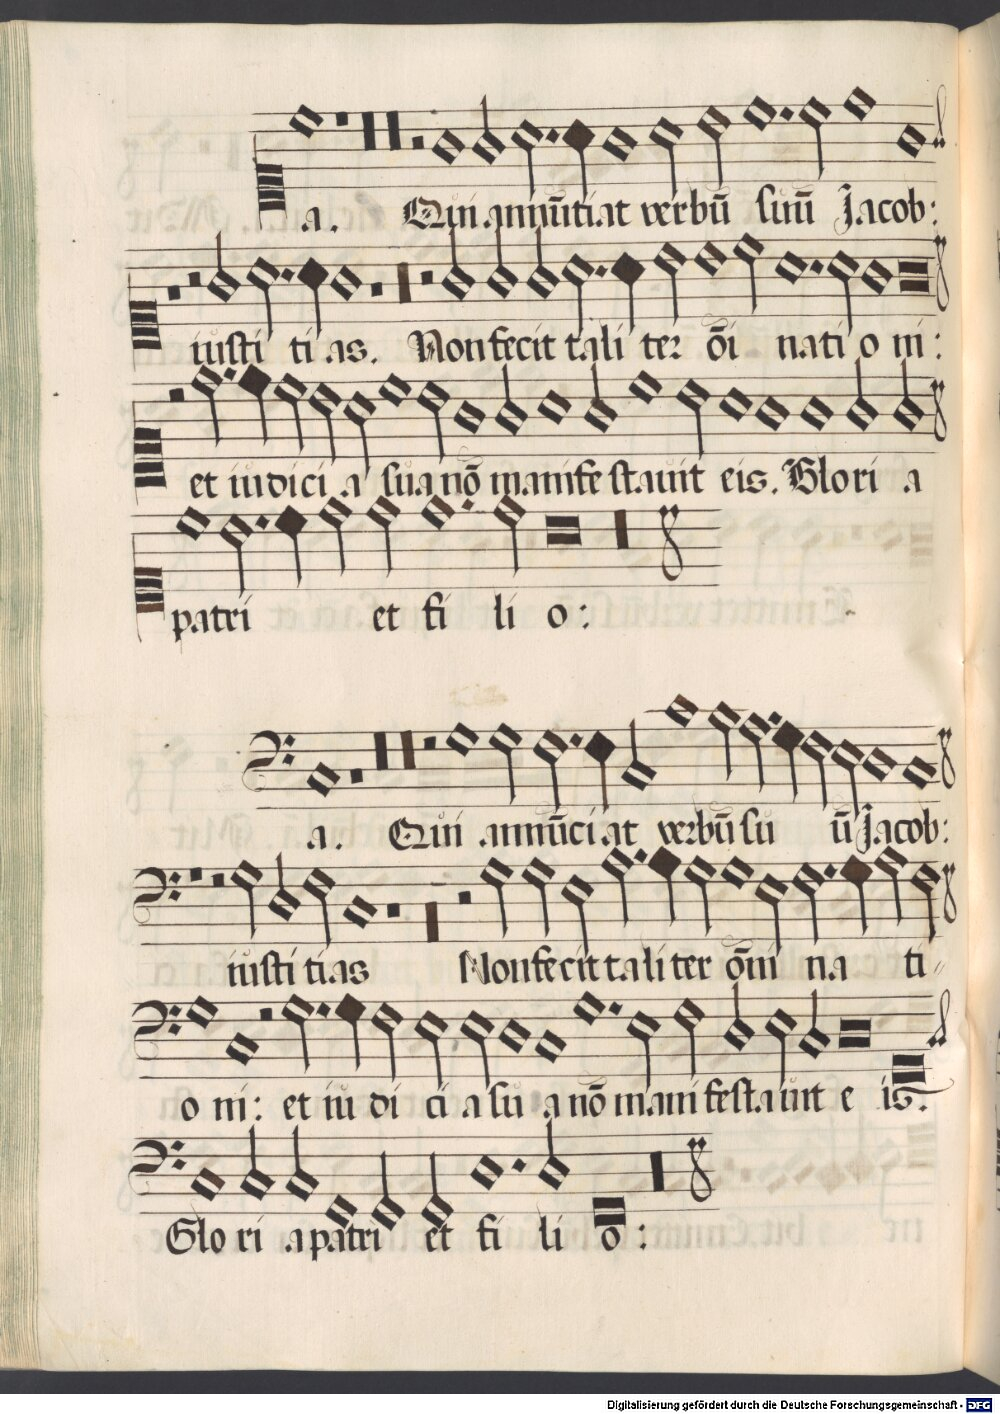 a. Qui annūtiat verbū suū Jacob:
iusti ti as. Non fecit tali ter ōi nati o ni:
et iudici a sua nō manife stauit eis. Glo ri a
patri et fi li o:
a. Qui annūci at verbū su ū Jacob:
iusti ti as Non fecit ta li ter ōni na ti
o ni: et iu di ci a su a nō mani festa uit e is.
Glo ri a patri et fi li o:
Digitalisierung gefördert durch die Deutsche Forschungsgemeinschaft - DFG